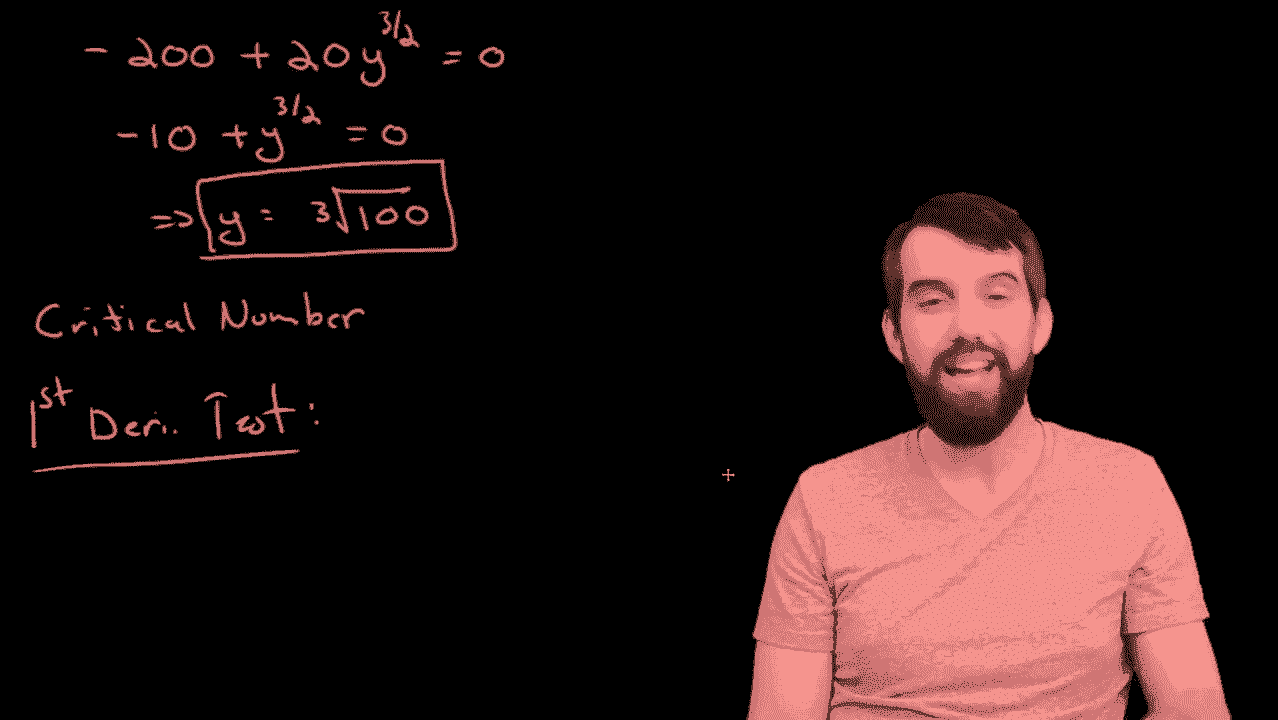 - 200 + 20y^{3/2} = 0
-10 + y^{3/2} = 0
=> y = 3√100
Critical Number
1st Deri. Test: